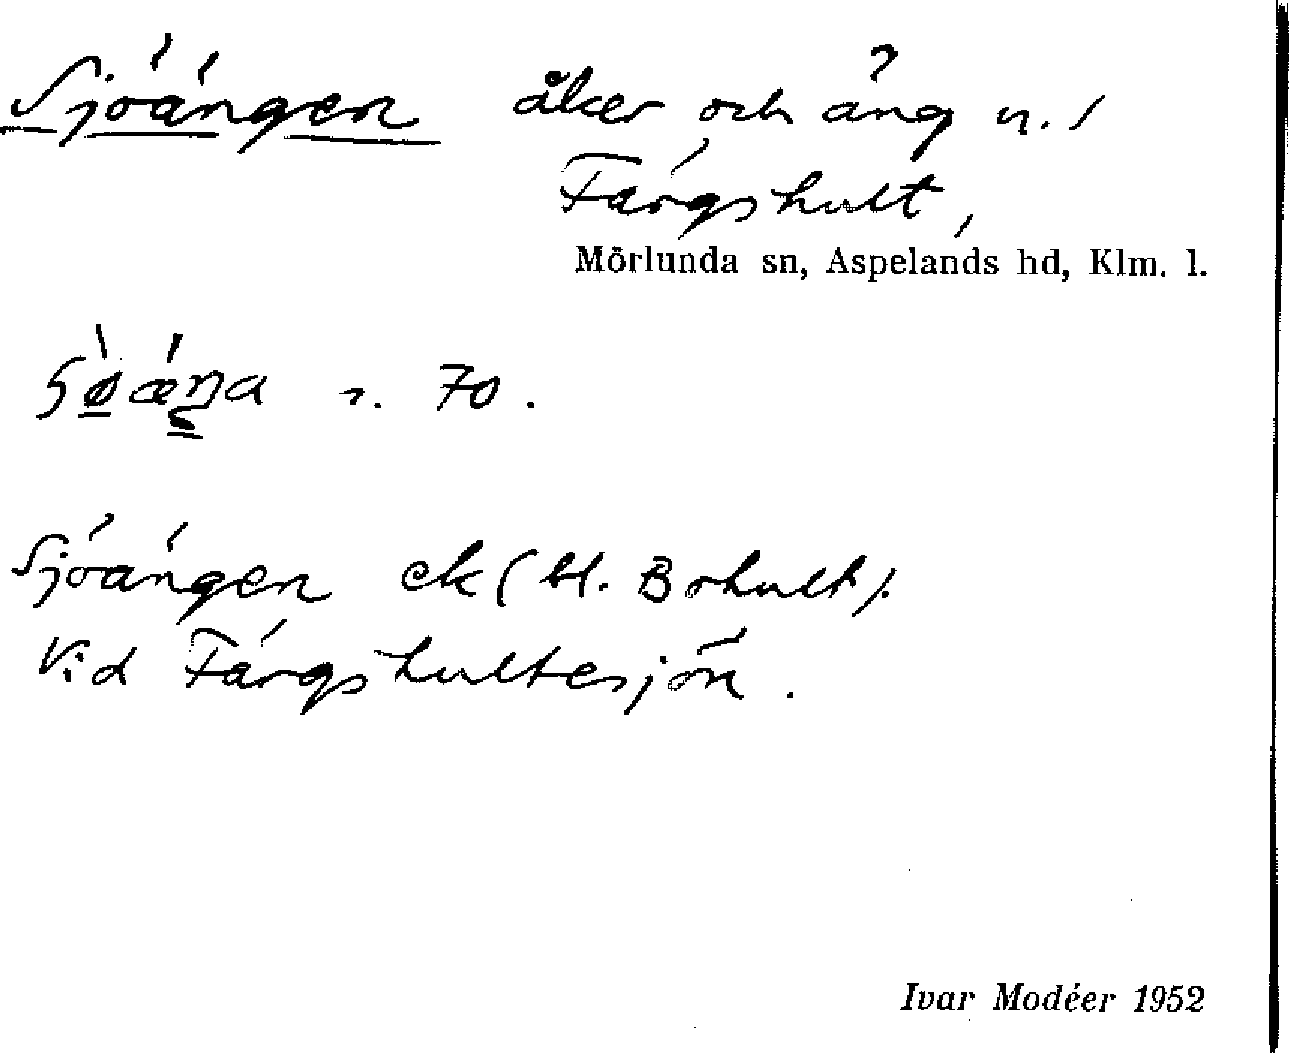 Sjöängen åker och äng n. 1
Färgshult,
Mörlunda sn, Aspelands hd, Klm. l.
r. 70.
Sjöängen ek (bl. Bohult).
Vid Färgshultesjön.
Ivar Modéer 1952